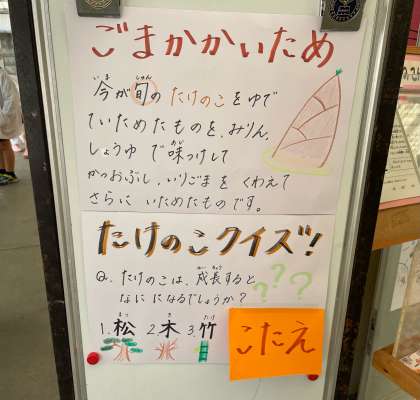 ごまかかいため
今が旬のたけのこをゆで
ていためたものを、みりん、
しょうゆで味つけして
かつおぶし、いりごまをくわえて
さらにいためたものです。
たけのこクイズ!
Q.たけのこは、成長すると
なにになるでしょうか?
???
1.松 2.木 3.竹
こたえ